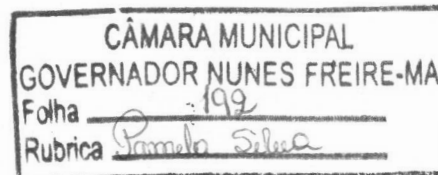 CÂMARA MUNICIPAL
GOVERNADOR NUNES FREIRE-MA
Folha 192
Rubrica Pamela Silva